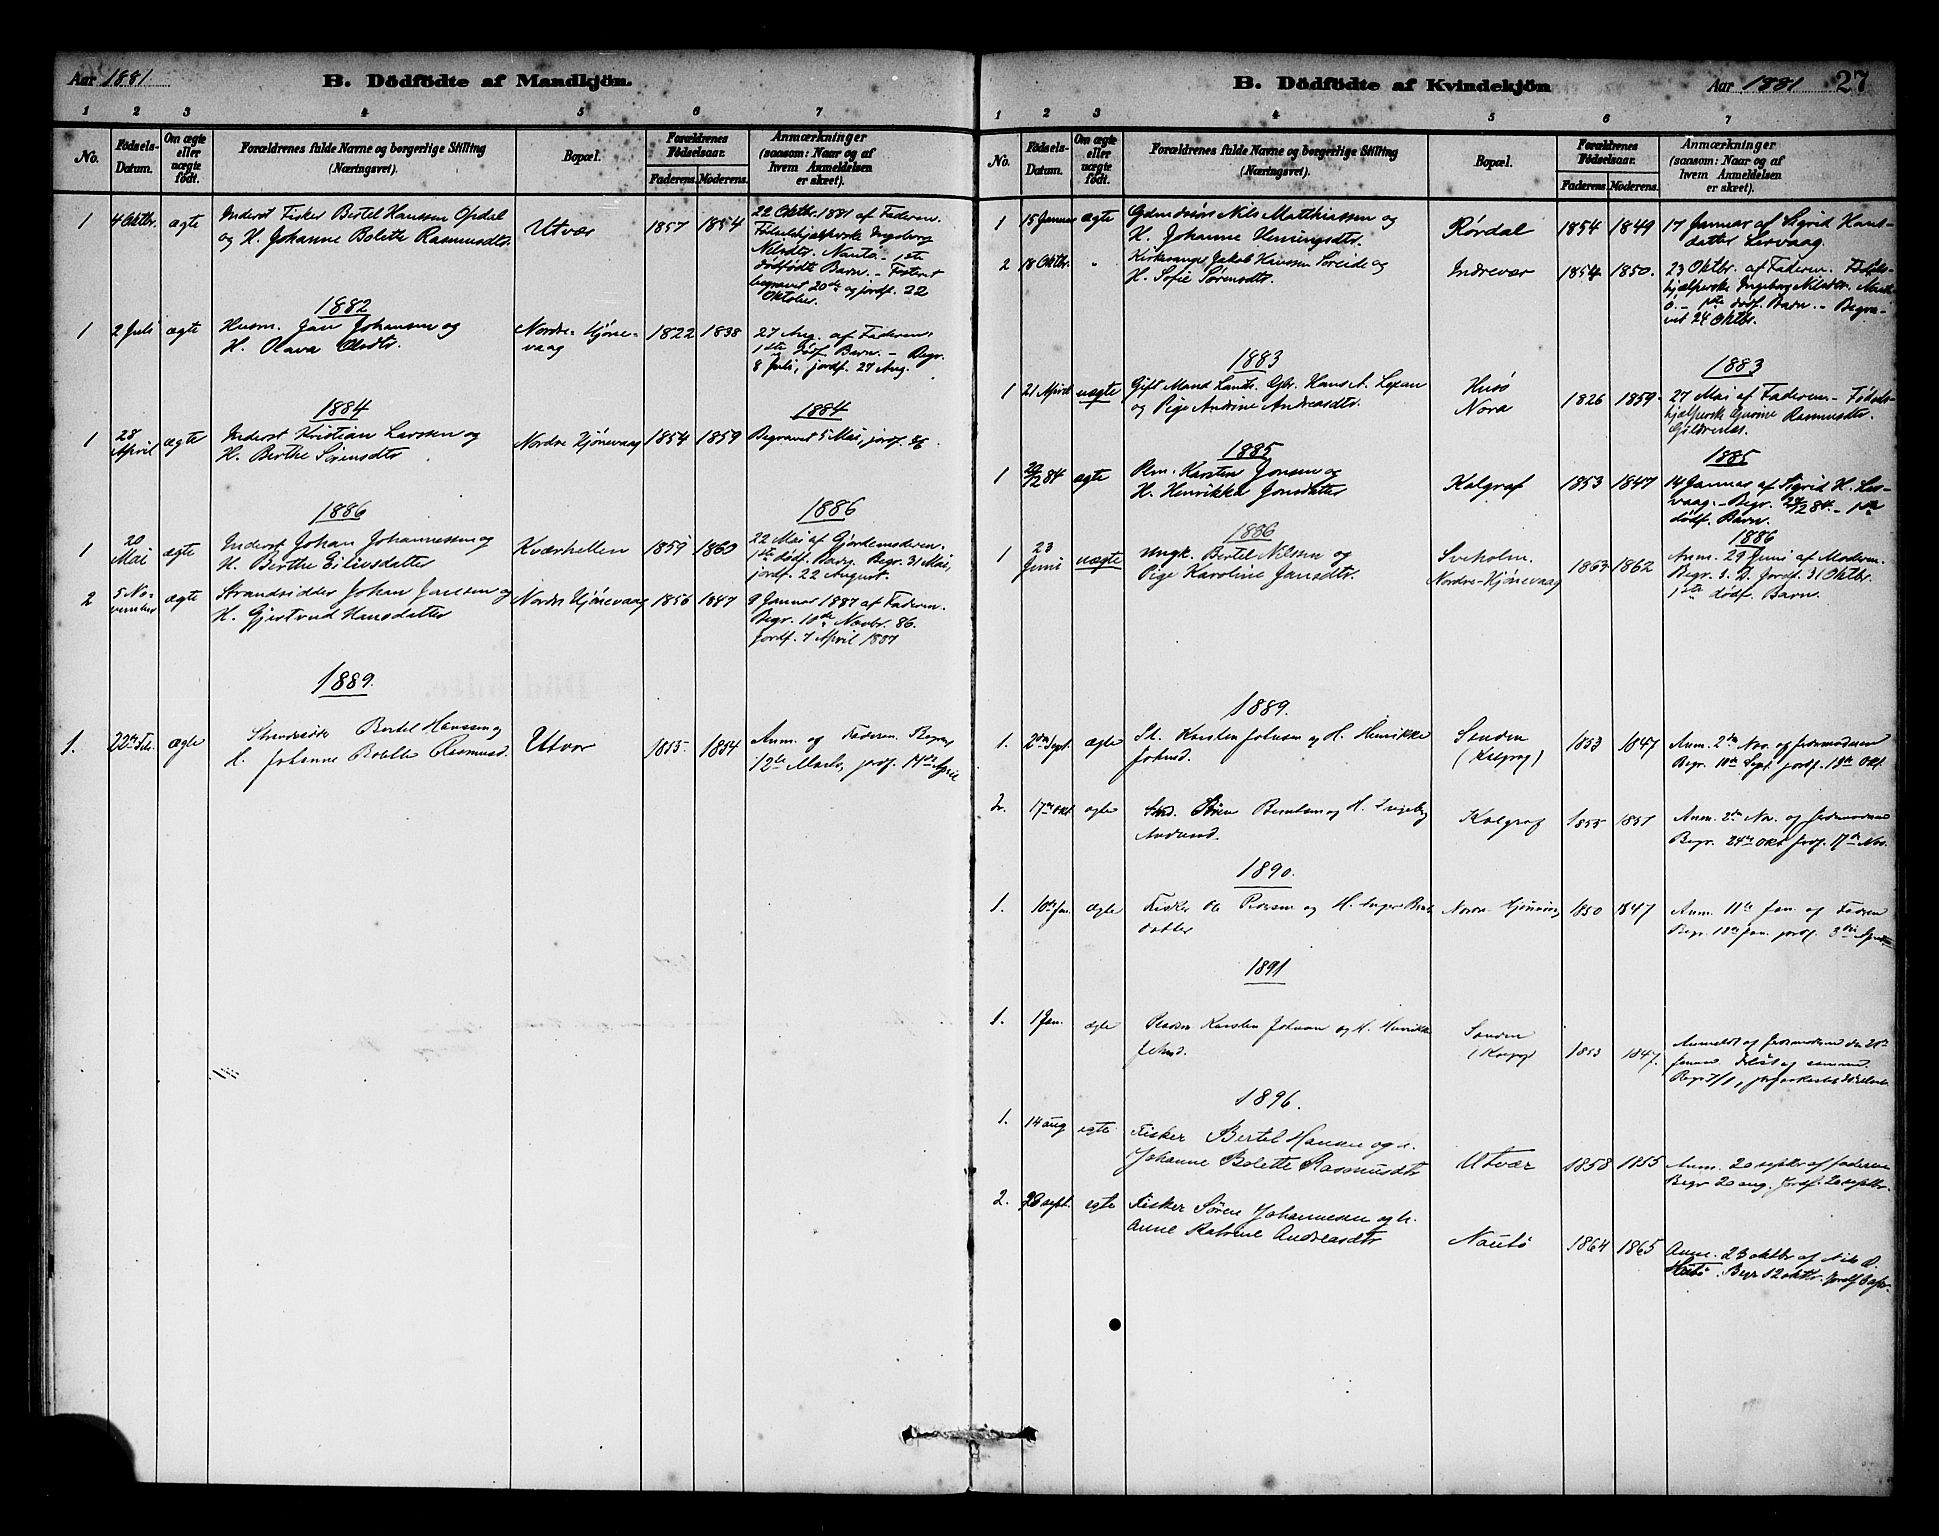 Aar 1881
B. Dödfödte af Mandkjön.
1 2 3 4 5 6 7
No.
Födsels-
Datum.
Om ægte
eller
uægte
födt.
Forældrenes fulde Navne og borgerlige Stilling
(Næringsvei).
Bopæl.
Forældrenes
Födselsaar.
Faderens. Moderens.
Anmærkninger
(saasom: Naar og af
hvem Anmeldelsen
er skeet).
1 4 Oktbr. ægte Inderst Fisker Bertel Hanssen Opdal Utvær 1857 1854 22 Oktbr. 1881 af Faderen.
og H. Johanne Bolette Rasmusdtr. Fødselshjælperske Ingeborg
Nilsdtr. Nautø. - 1ste
dødfødte Barn. - Fosteret
begravet 20de og jordf. 22
Oktober.
1882
1 2 Juli ægte Husm. Jan Johansen og Nordre-Hjøne- 1822 1838 27 Aug. af Faderen.
H. Olava Olsdtr. vaag 1ste død. Barn. - Begr.
8 Juli, jordf. 27 Aug.
1884 1884
1 28 April ægte Inderst Kristian Larsen og Nordre Hjønevaag 1854 1859 Begravet 5 Mai, jordf.
H. Berthe Sørensdtr
1886 1886
1 20 Mai ægte Inderst Johan Johannessen og Kværhellen 1859 1860 22 Mai af Gjordemoderen.
H. Berthe Eilivsdatter 1ste dødf. Barn. Begr. 31 Mai,
jordf. 22 August.
2 5 November ægte Strandsidder Johan Jansen og Nordre Hjønevaag 1856 1847 9 Januar 1887 af Faderen.
H. Gjertrud Hansdatter Begr. 10de Novbr. 86.
Jordf. 7 April 1887
1889.
1. 22de Feb. ægte Strandsidder Bertel Hanssen og Utvær 1854 Anm. og Faderen. Begrav
H. Johanne Bolette Rasmusd. 12te Marts, jordf. 14de April
B. Dödfödte af Kvindekjön
Aar 1881 27
1 2 3 4 5 6 7
No.
Födsels-
Datum.
Om ægte
eller
uægte
födt.
Forældrenes fulde Navne og borgerlige Stilling
(Næringsvei).
Bopæl.
Forældrenes
Födselsaar.
Faderens. Moderens.
Anmærkninger
(saasom: Naar og af
hvem Anmeldelsen
er skeet).
1 15 Januar ægte Gdmdssøn Nils Matthiassen og Rørdal 1854 1849 17 Januar af Sigrid Hans-
H. Johanne Henningsdtr. datter Lervaag.
2 18 Oktbr. " Kirkesanger Jakob Hanssen Søreide og Indrevær 1854 1850. 23 Oktbr. af Faderen. Føds.
H. Sofie Sørensdtr. hjælperske Ingeborg Nilsdtr. Naut-
ø. - 1ste dødf. Barn. - Begra-
vet 24 Oktbr.
1883 1883
1 21 April uægte Gift Mand Landh. Gbr. Hans A. Husø 1826 1859. 27 Mai af Faderen. - Føds.
og Pige Andrine Andreasdtr. Nora hjælpersk Gurine Rasmusdtr.
1885 1885
1 84 ægte Plm. Karsten Jonsen og Kalgraf 1853 1847 14 Januar af Sigrid H. Ler-
H. Henrikke Jonsdatter vaag. - Begr. 84. - 1ste
dødf. Barn.
1886 1886
1 23 Juni uægte Ungk. Bertel Nilsen og Sveholm. 1863 1862 Anm. 29 Juni af Moderen.
Pige Karoline Jansdtr. Nordre-Hjønevaag Begr. s. D. Jordf. 31 Oktbr.
1ste dødf. Barn.
1889.
1. 2den Sept. ægte St. Karsten Johnsen og H. Henrikke Sanden 1853 1847 Anm. 2den Nov. og Jordemoderen
Johnsd. (Kalgraf) Begr. 10de Sept. jordf. 13de Okt.
2. 17de Okt. ægte Strd. Søren Berntsen og H. Ingeborg Kalgraf 1855 1857 Anm. 2den Nov. og Jordemoderen
Andersd. Begr. 24de Okt. jordf. 17de Nov.
1890.
1. 10de Jan. ægte Fisker Ole Pedersen og H. Inger Bernts- Nordre Hjønevaag 1850 1847 Anm. 11te Jan. og Faderen
datter Begr. 18de Jan. jordf. 3die April
1891
1. 1 Jan. ægte Karsten Johnsen og H. Henrikke Sanden 1853 1847. Anmeldt og Jordemoderen den
Johnsd. (Kalgraf) Januar samme.
1896.
1. 14 aug ægte. Fisker Bertel Hansen og h. Utvær 1858 1855 Anm. 20 septbr af faderen
Johanne Bolette Rasmusdtr Begr 20 aug. Jordf. 20 septbr.
2. 26 sept. ægte Fisker Søren Johannesen og h. Nautø 1864 1865 Anm. 23 oktbr af Nils
Anne Katrine Andreasdtr Nautø. Begr. 12 oktbr. Jordf